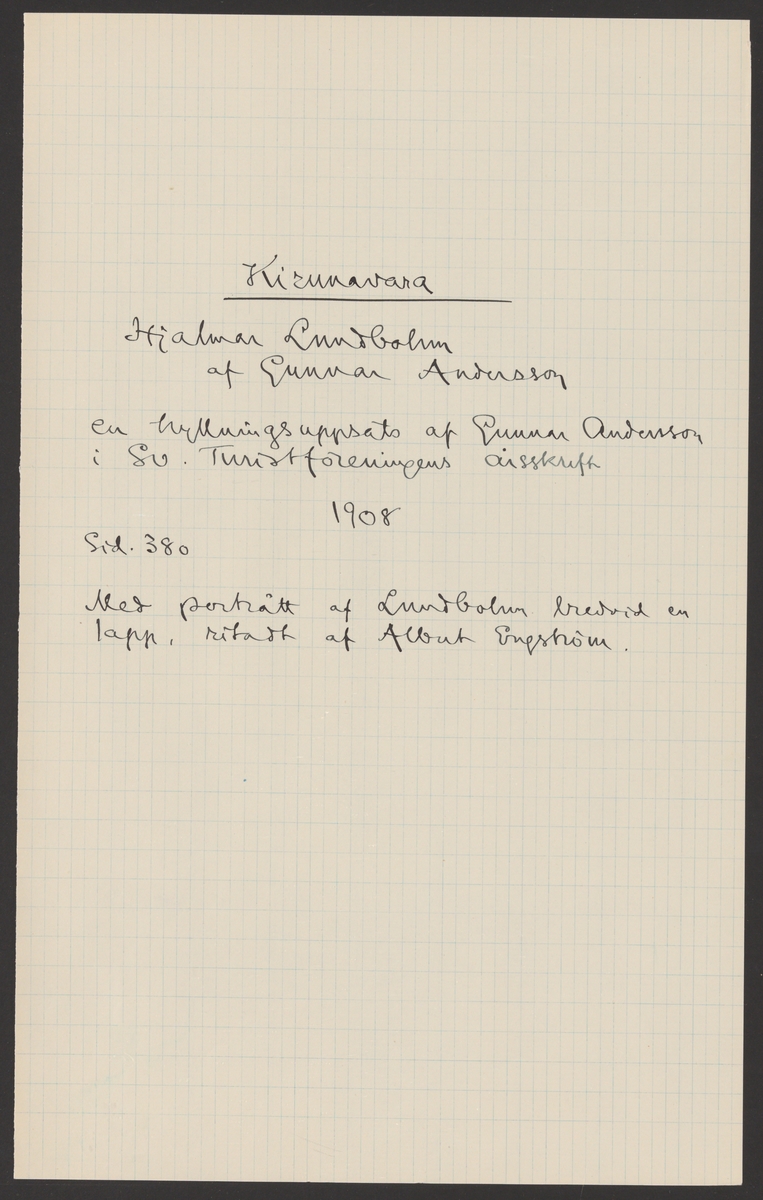 Kirunavara
Hjalmar Lundbohm
af Gunnar Andersson
en hyllningsuppsats af Gunnar Andersson
i Sv. Turistföreningens årsskrift
1908
Sid. 380
Med porträtt af Lundbohm bredvid en
lapp, ritadt af Albert Engström.